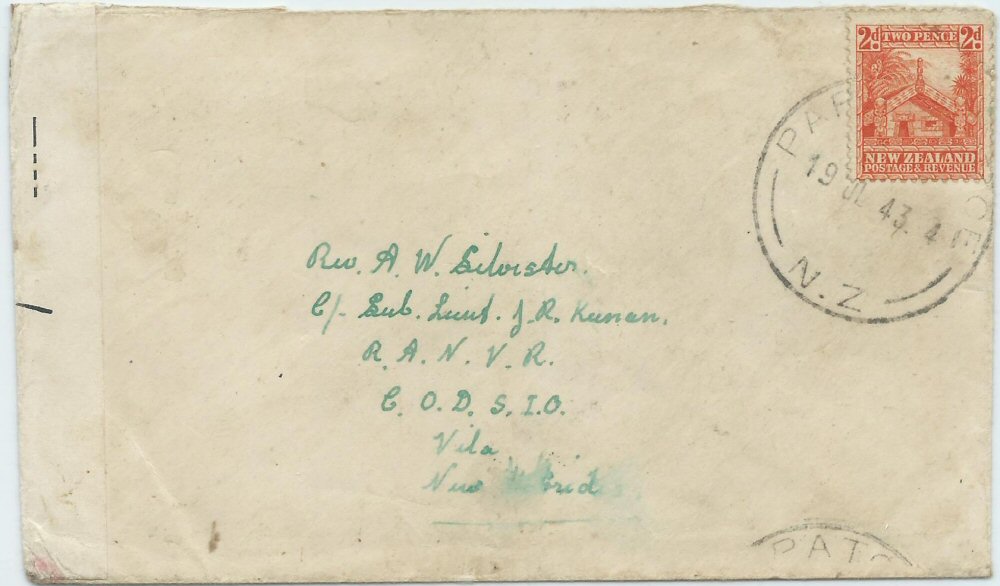 2d TWO PENCE 2d
NEW ZEALAND
POSTAGE & REVENUE
19 JL 43. 4
N.Z
Rev. A. W. Silvester.
C/- Sub. Lieut. J. R. Keenan,
R. A. N. V. R.
C. O. D. S. I. O.
Vila
New
PATO